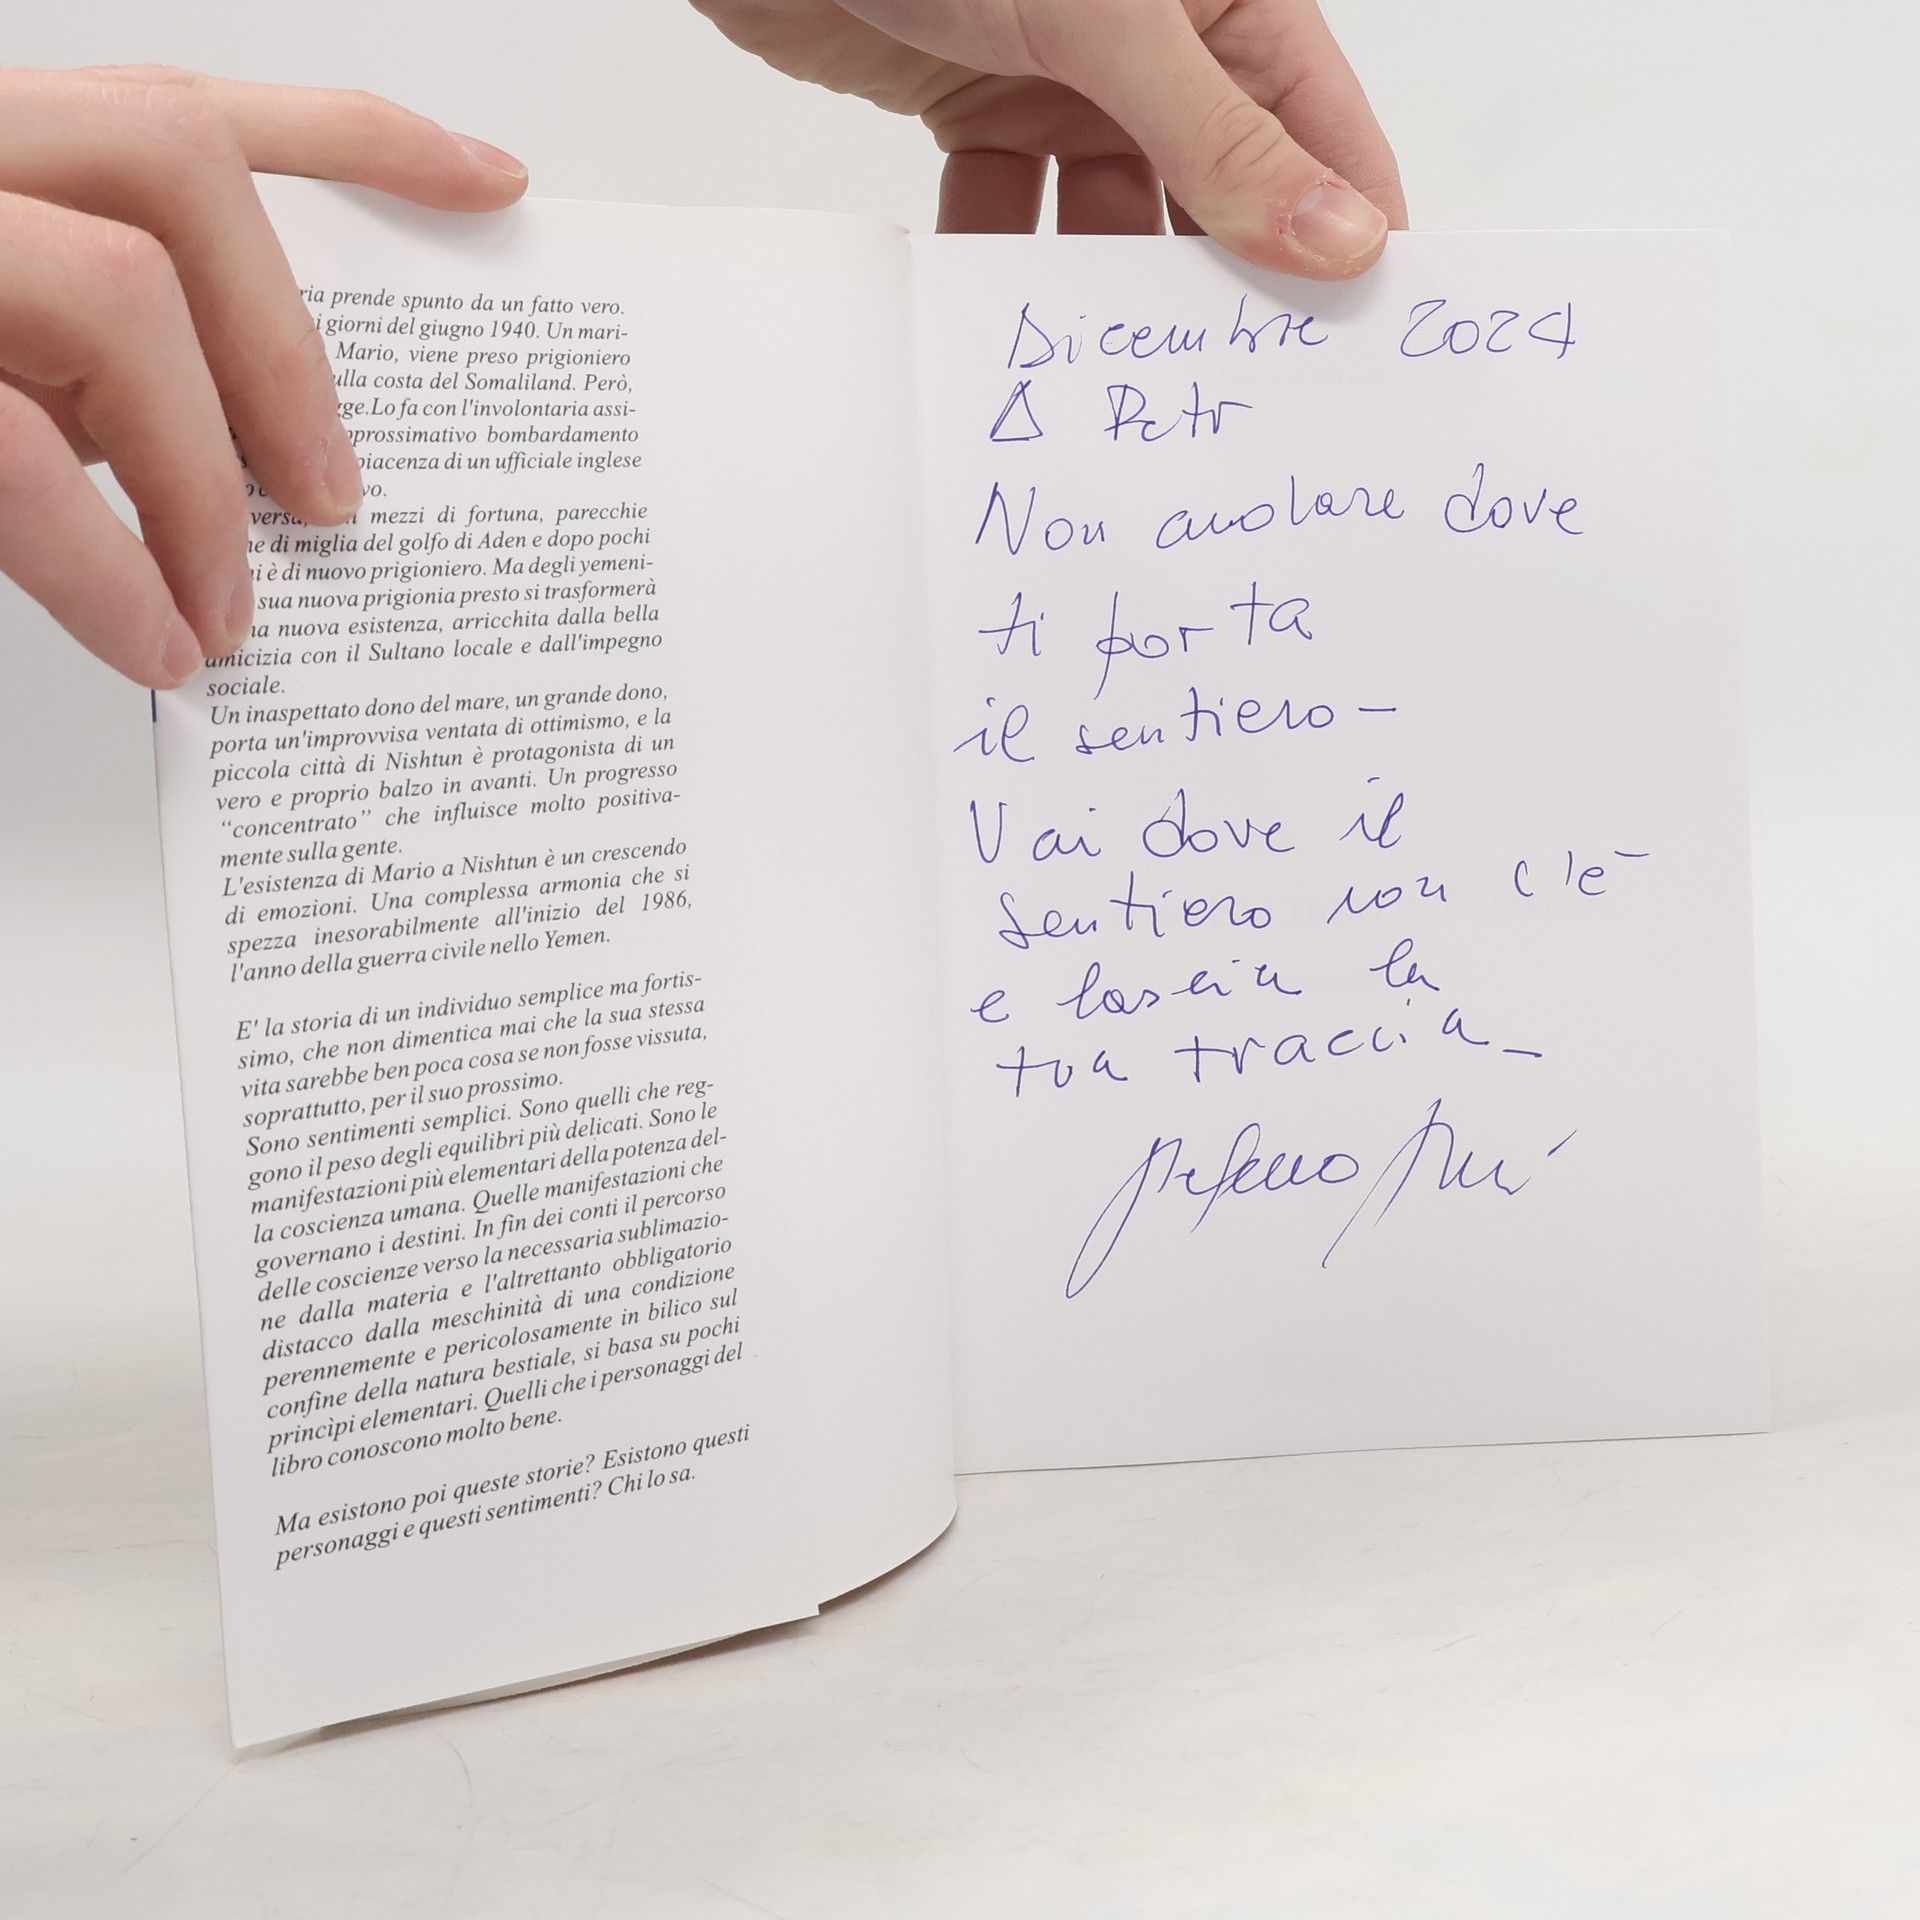 ria prende spunto da un fatto vero.
i giorni del giugno 1940. Un mari-
Mario, viene preso prigioniero
ulla costa del Somaliland. Però,
gge.Lo fa con l'involontaria assi-
pprossimativo bombardamento
piacenza di un ufficiale inglese
vo.
versa, mezzi di fortuna, parecchie
ne di miglia del golfo di Aden e dopo pochi
ni è di nuovo prigioniero. Ma degli yemeni-
sua nuova prigionia presto si trasformerà
na nuova esistenza, arricchita dalla bella
amicizia con il Sultano locale e dall'impegno
sociale.
Un inaspettato dono del mare, un grande dono,
porta un'improvvisa ventata di ottimismo, e la
piccola città di Nishtun è protagonista di un
vero e proprio balzo in avanti. Un progresso
“concentrato” che influisce molto positiva-
mente sulla gente.
L'esistenza di Mario a Nishtun è un crescendo
di emozioni. Una complessa armonia che si
spezza inesorabilmente all'inizio del 1986,
l'anno della guerra civile nello Yemen.
E' la storia di un individuo semplice ma fortis-
simo, che non dimentica mai che la sua stessa
vita sarebbe ben poca cosa se non fosse vissuta,
soprattutto, per il suo prossimo.
Sono sentimenti semplici. Sono quelli che reg-
gono il peso degli equilibri più delicati. Sono le
manifestazioni più elementari della potenza del-
la coscienza umana. Quelle manifestazioni che
governano i destini. In fin dei conti il percorso
delle coscienze verso la necessaria sublimazio-
ne dalla materia e l'altrettanto obbligatorio
distacco dalla meschinità di una condizione
perennemente e pericolosamente in bilico sul
confine della natura bestiale, si basa su pochi
princìpi elementari. Quelli che i personaggi del
libro conoscono molto bene.
Ma esistono poi queste storie? Esistono questi
personaggi e questi sentimenti? Chi lo sa.
Dicembre 2024
A Petr
Non andare dove
ti porta
il sentiero -
Vai dove il
sentiero non c'è
e lascia la
tua traccia_
Stefano